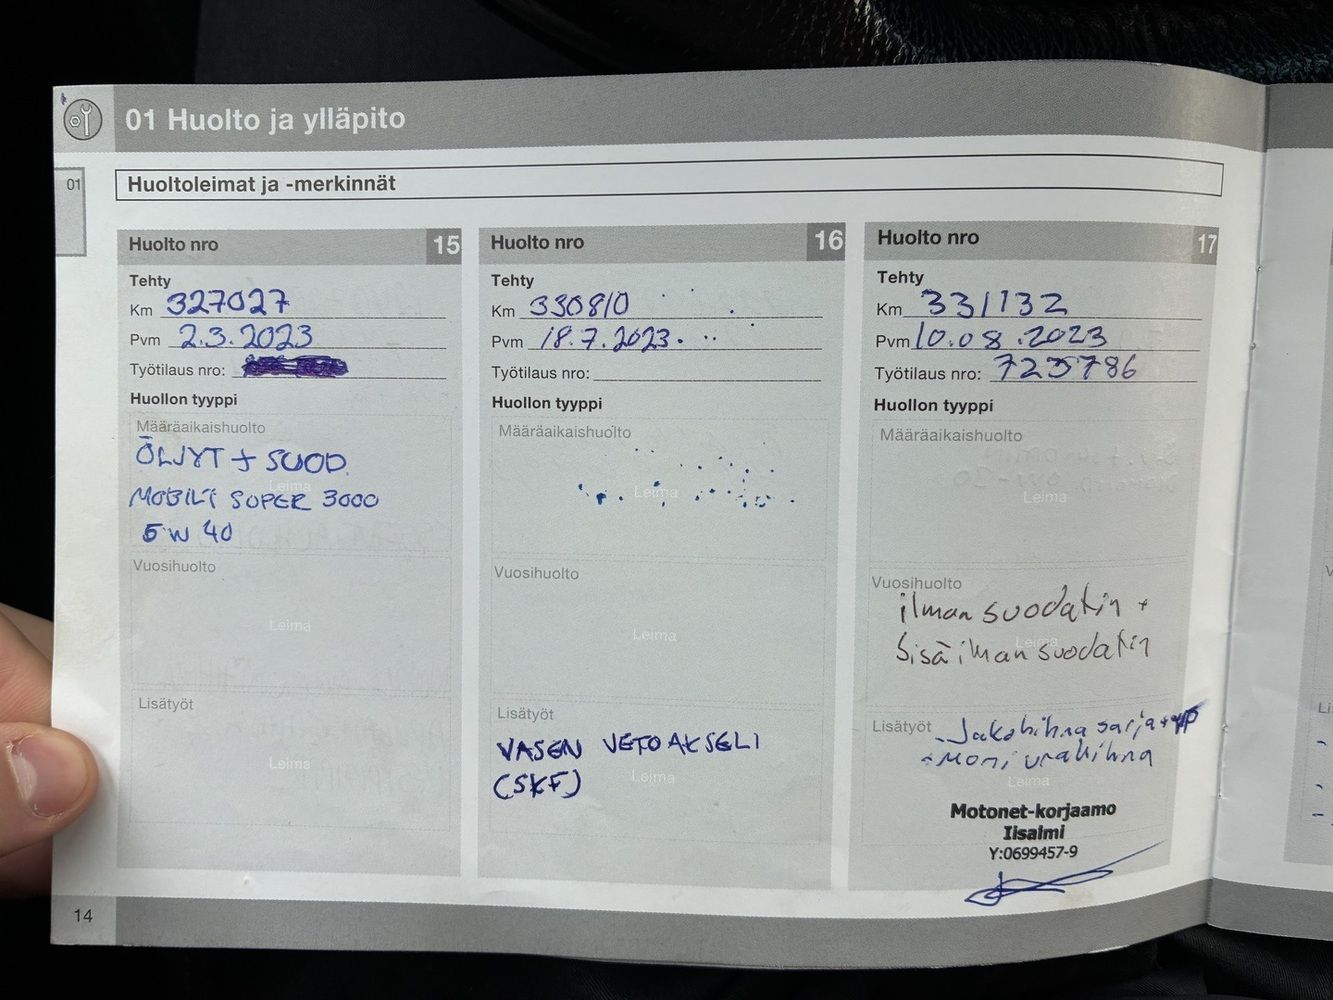 01 Huolto ja ylläpito
01
Huoltoleimat ja -merkinnät
Huolto nro 15
Tehty
Km 327027
Pvm 2.3.2023
Työtilaus nro:
Huollon tyyppi
Määräaikaishuolto
ÖLJYT + SUOD.
Leima
MOBIL1 SUPER 3000
5W 40
Vuosihuolto
Leima
Lisätyöt
Leima
Huolto nro 16
Tehty
Km 330810
Pvm 18.7.2023.
Työtilaus nro:
Huollon tyyppi
Määräaikaishuolto
Leima
Vuosihuolto
Leima
Lisätyöt
VASEN VETOAKSELI
(SKF)
Leima
Huolto nro 17
Tehty
Km 331132
Pvm 10.08.2023
Työtilaus nro: 7235786
Huollon tyyppi
Määräaikaishuolto
Leima
Vuosihuolto
ilman suodatin +
Leima
Sisäilman suodatin
Lisätyöt - Jakohihna sarja +vp
- Moni urahihna
Leima
Motonet-korjaamo
Iisalmi
Y:0699457-9
14